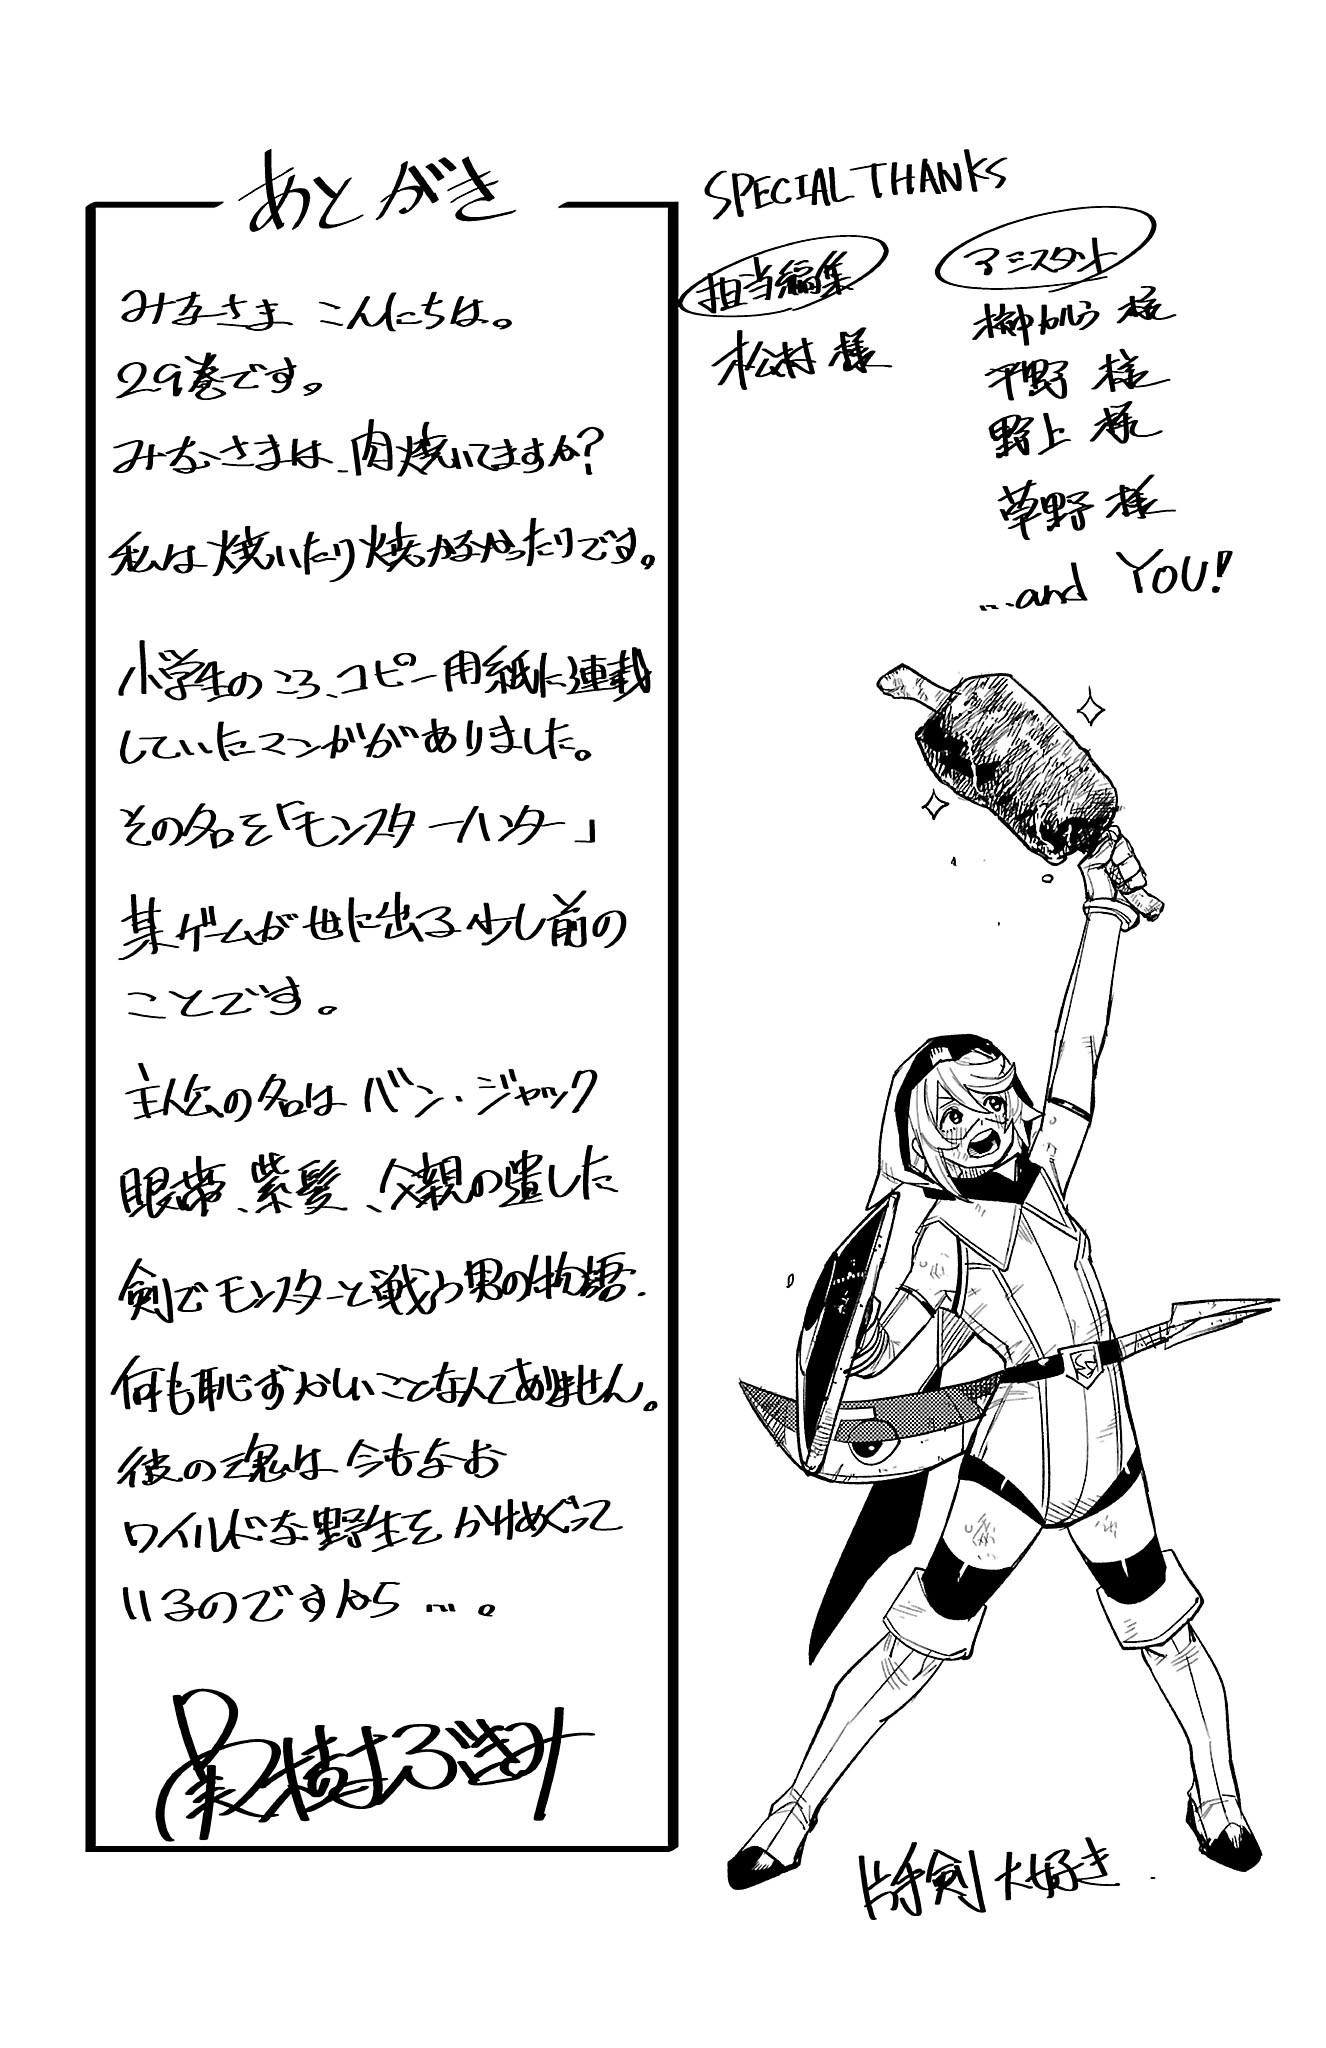 あとがき
みなさま こんにちは。
29巻です。
みなさまは、肉焼いてますか?
私は焼いたり焼かなかったりです。
小学生のころ、コピー用紙に連載
していたマンガがありました。
その名を「モンスターハンター」
某ゲームが世に出る少し前の
ことです。
主人公の名はバン・ジャック
眼帯、紫髪、父親の遺した
剣でモンスターと戦う男の物語.
何も恥ずかしいことなんてありません。
彼の魂は今もなお
ワイルドな野生をかけめぐって
いるのですから…。
SPECIAL THANKS
担当編集
松村様
アシスタント
様
平野 様
野上 様
草野 様
...and YOU!
片手剣大好き